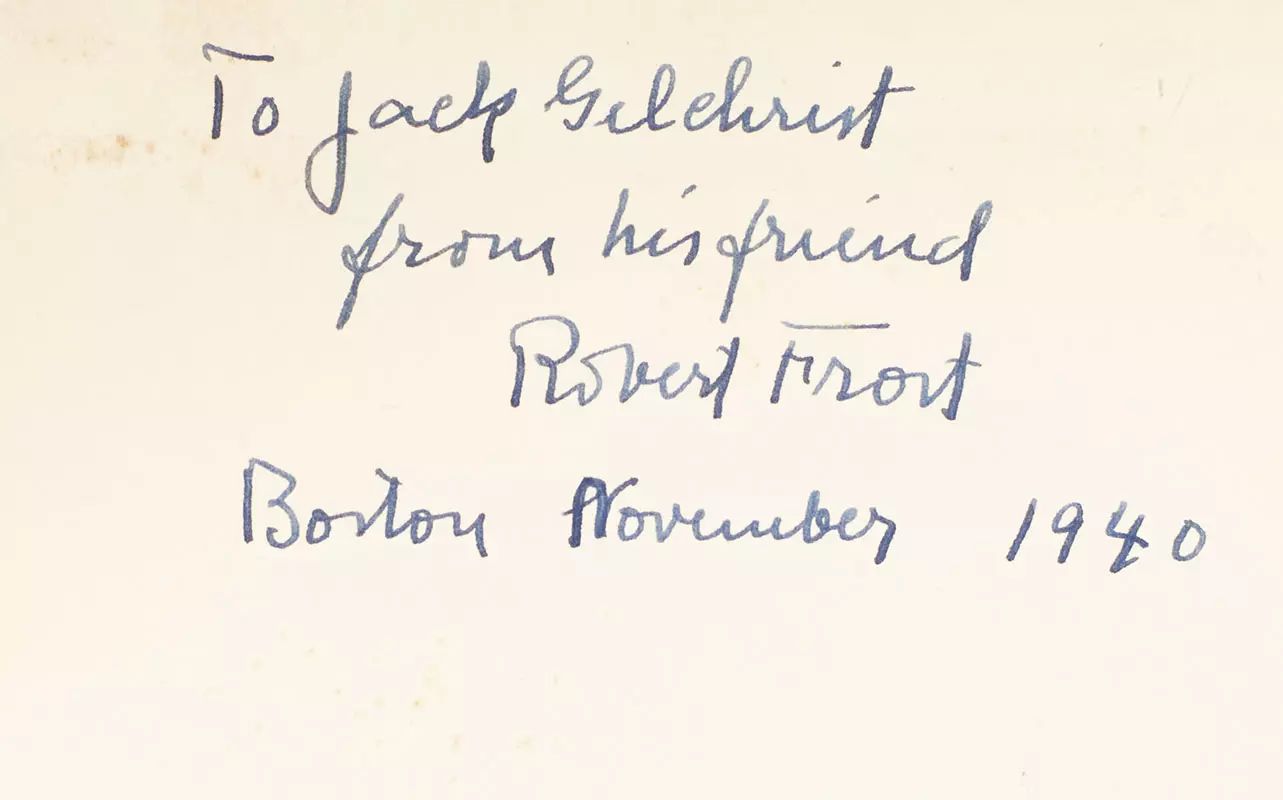 To Jack Gilchrist
from his friend
Robert Frost
Boston November 1940